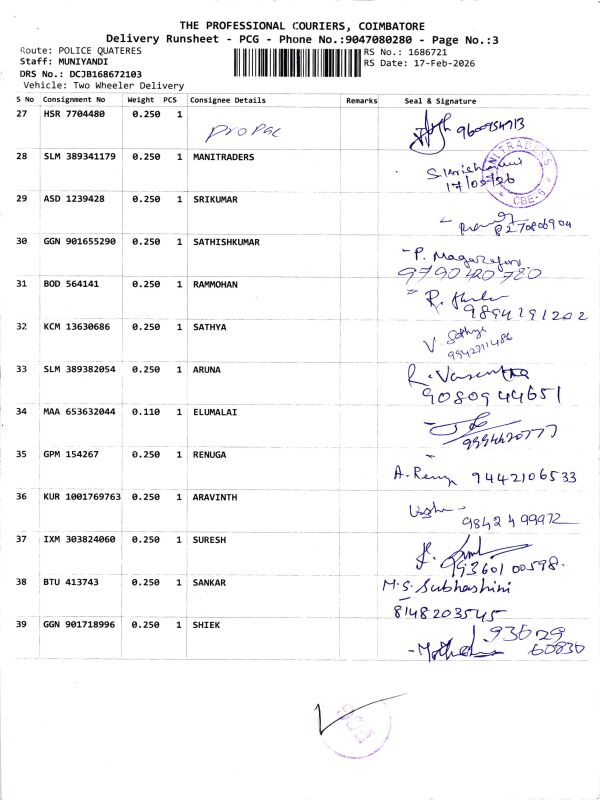 THE PROFESSIONAL COURIERS, COIMBATORE
Delivery Runsheet - PCG - Phone No.:9047080280 - Page No.:3
Route: POLICE QUATERES
Staff: MUNIYANDI
DRS No.: DCJB168672103
Vehicle: Two Wheeler Delivery
RS No.: 1686721
RS Date: 17-Feb-2026
S No Consignment No Weight PCS Consignee Details Remarks Seal & Signature
27 HSR 7704480 0.250 1 propac
28 SLM 389341179 0.250 1 MANITRADERS
17/02/26
CBE-6
29 ASD 1239428 0.250 1 SRIKUMAR
30 GGN 901655290 0.250 1 SATHISHKUMAR
P.
9790420780
31 BOD 564141 0.250 1 RAMMOHAN
R.
9894291202
32 KCM 13630686 0.250 1 SATHYA
V. Sathya
9942711486
33 SLM 389382054 0.250 1 ARUNA
R. Vasantha
9080944651
34 MAA 653632044 0.110 1 ELUMALAI
35 GPM 154267 0.250 1 RENUGA
A. Renu 9442106533
36 KUR 1001769763 0.250 1 ARAVINTH
9842499972
37 IXM 303824060 0.250 1 SURESH
9360100598.
38 BTU 413743 0.250 1 SANKAR
M.S. Subhashini
8148203545
39 GGN 901718996 0.250 1 SHIEK
93629
60830